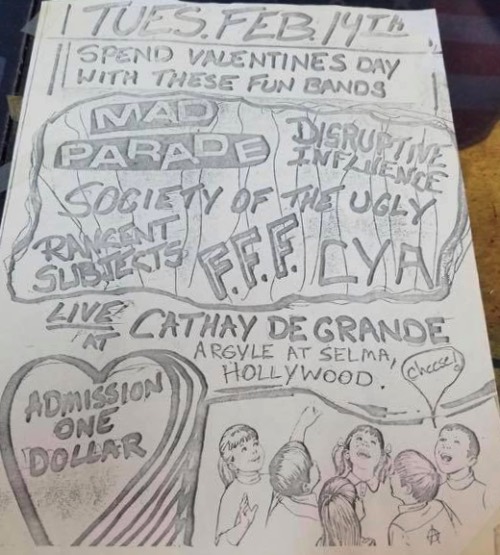 TUES. FEB. 14TH
SPEND VALENTINES DAY
WITH THESE FUN BANDS
MAD
PARADE
DISRUPTIVE
INFLUENCE
SOCIETY OF THE UGLY
RANCENT
SUBJECTS
F.F.F.
CYA
LIVE
AT CATHAY DE GRANDE
ARGYLE AT SELMA,
HOLLYWOOD.
cheese!
ADMISSION
ONE
DOLLAR